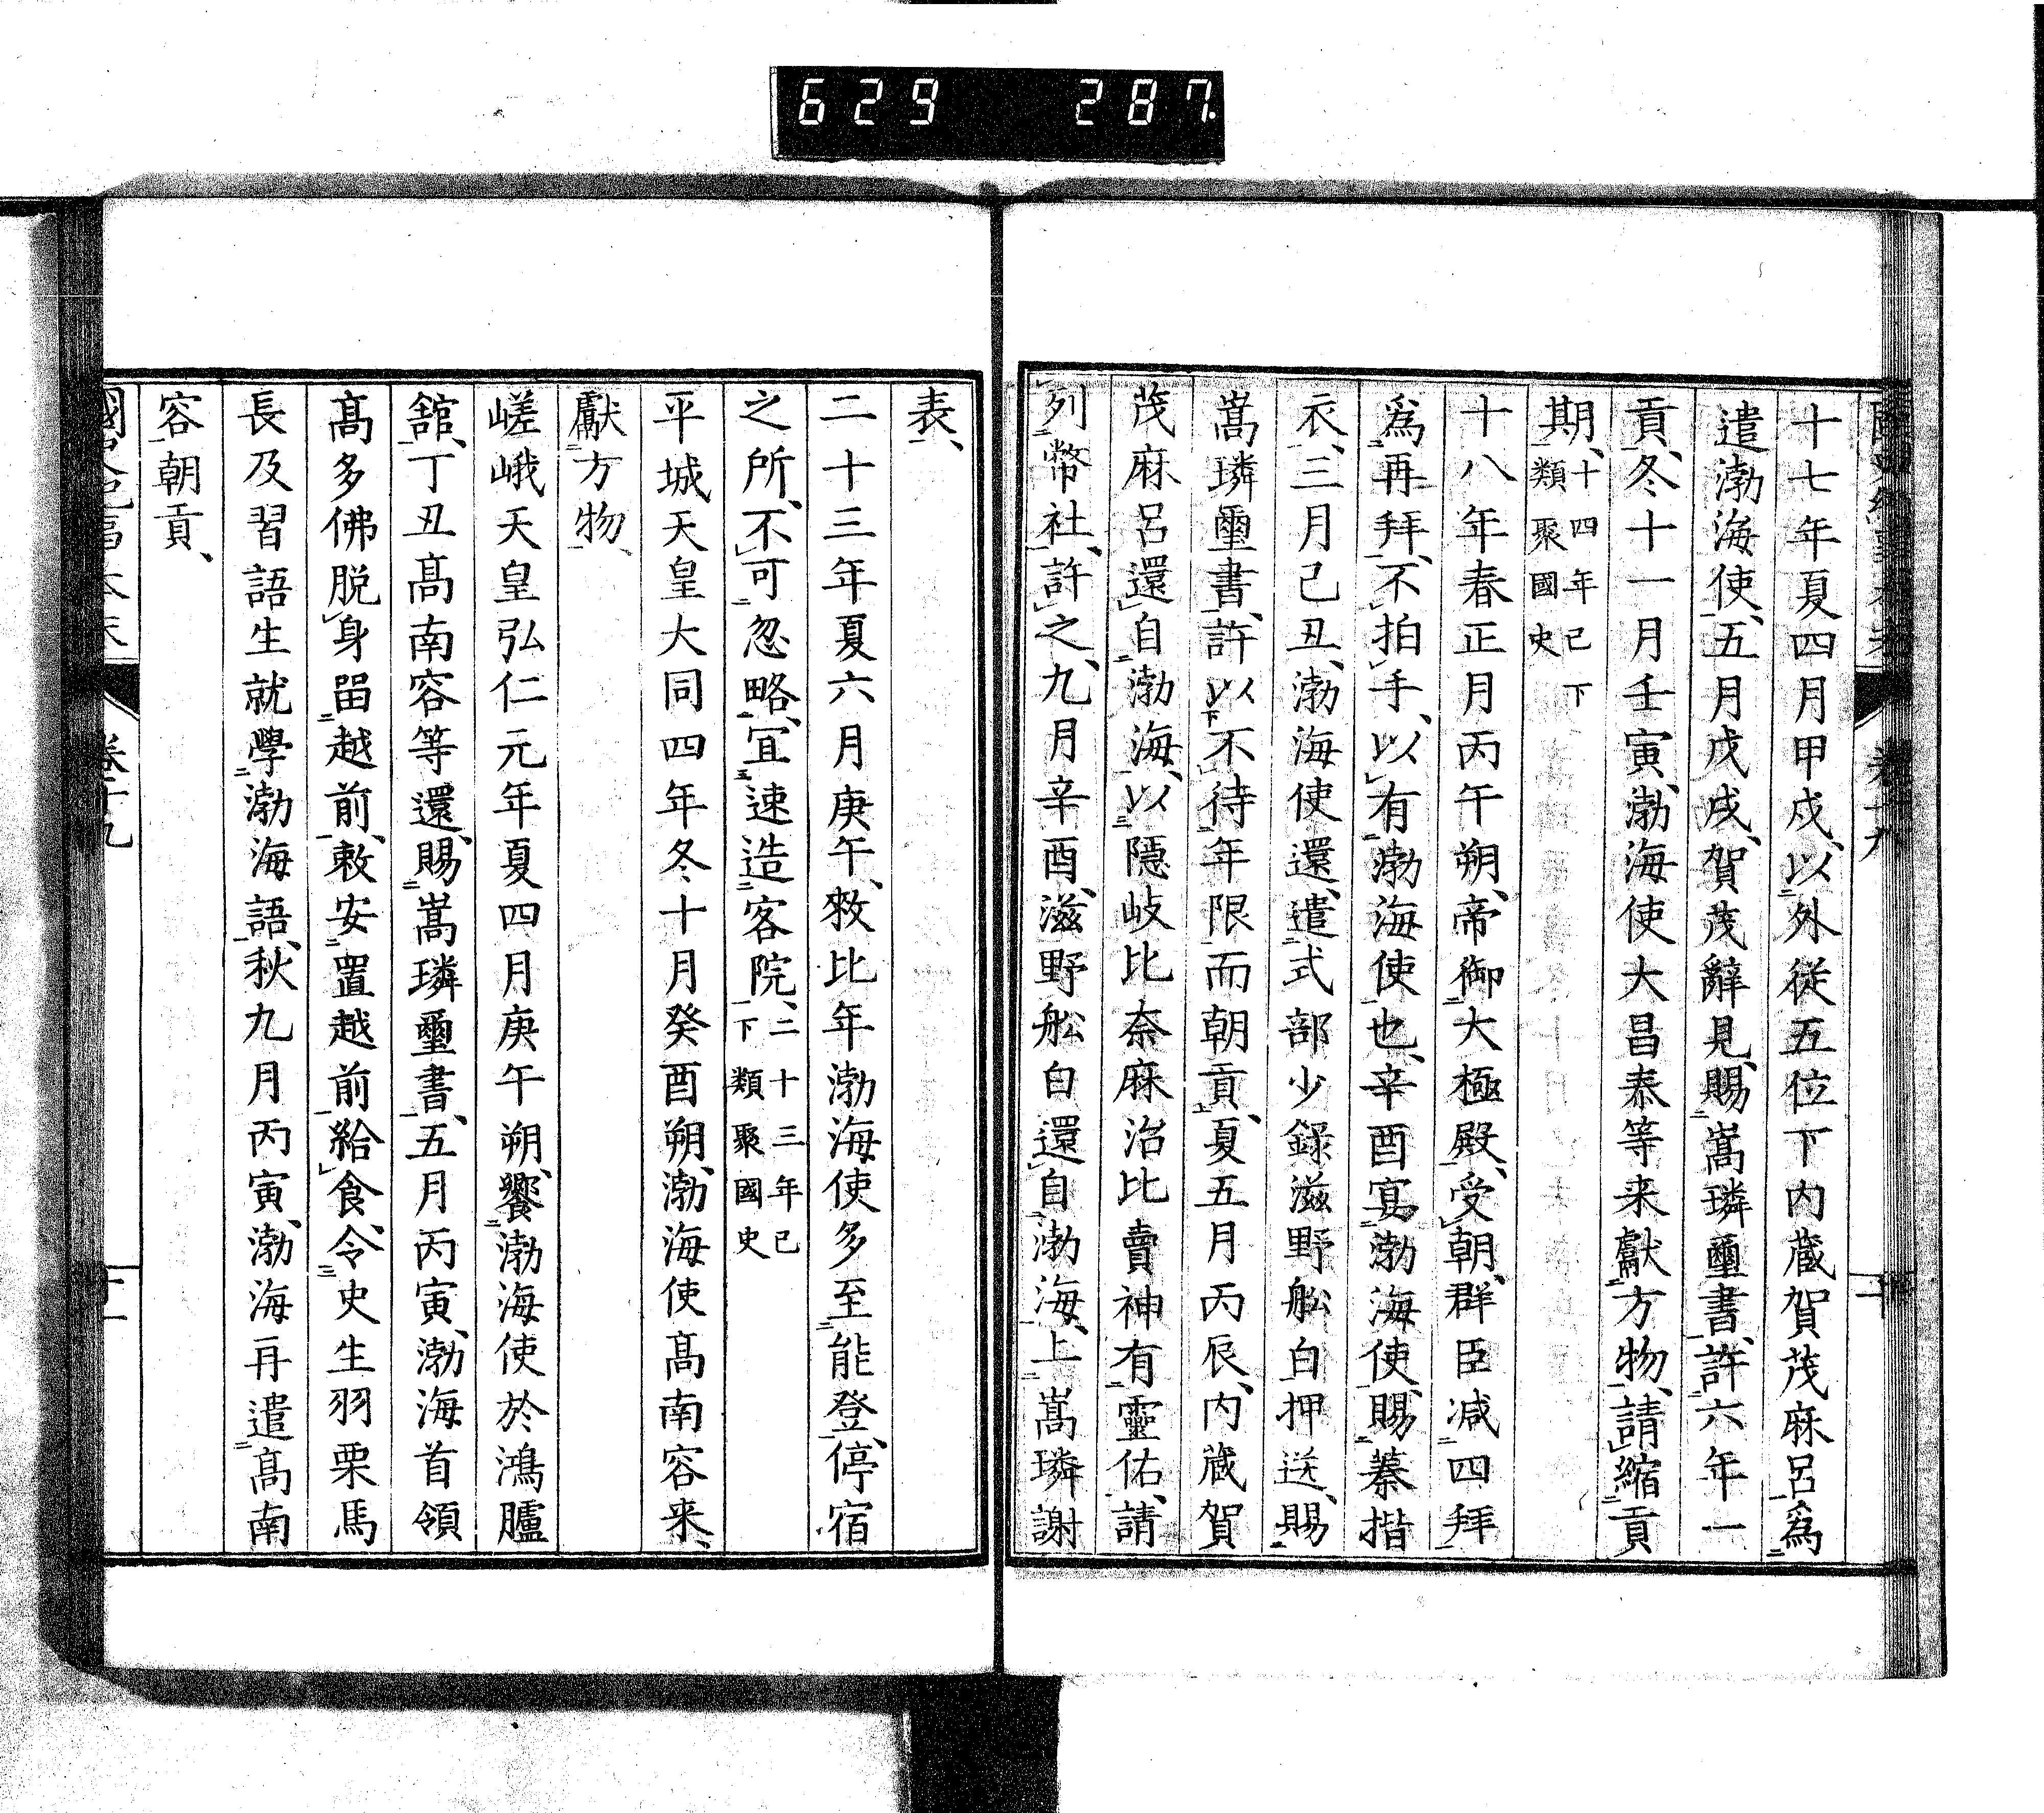 629 287.
十七年夏四月甲戌、以外從五位下内蔵賀茂麻呂爲
遣渤海使、五月戊戌、賀茂辭見、賜嵩璘璽書、許六年一
貢、冬十一月壬寅、渤海使大昌泰等来獻方物、請縮貢
期、十四年已下類聚國史
十八年春正月丙午朔、帝御大極殿、受朝、群臣減四拜
爲再拜、不拍手、以有渤海使也、辛酉宴渤海使、賜蓁揩
衣、三月己丑、渤海使還、遣式部少錄滋野舩白押送、賜
嵩璘璽書、許以不待年限而朝貢、夏五月丙辰、内蔵賀
茂麻呂還自渤海、以隱岐比奈麻治比賣神有靈佑、請
列幣社、許之、九月辛酉、滋野舩白還自渤海、上嵩璘謝
表、
二十三年夏六月庚午、敕比年渤海使多至能登、停宿
之所、不可忽略、宜速造客院、二十三年已下類聚國史
平城天皇大同四年冬十月癸酉朔、渤海使髙南容来、
獻方物、
嵯峨天皇弘仁元年夏四月庚午朔、饗渤海使於鴻臚
舘、丁丑髙南容等還、賜嵩璘璽書、五月丙寅、渤海首領
髙多佛脱身畱越前、敕安置越前給食、令史生羽栗馬
長及習語生就學渤海語、秋九月丙寅、渤海再遣髙南
容朝貢、
卷十九